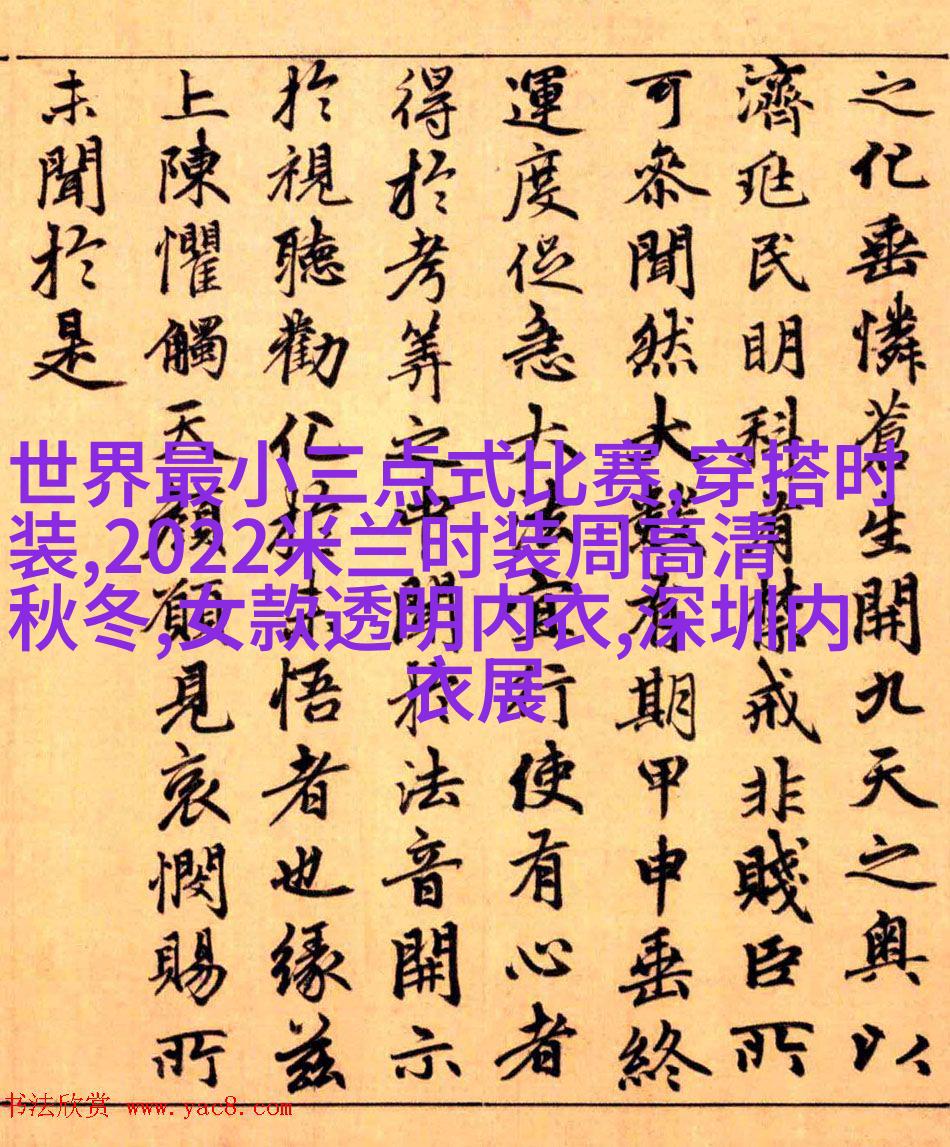 之化垂憐蒼生開九天之奧以
濟兆民明科有禁戒非賤臣所
可叅聞然大難有期甲申垂終
運度促急大法宜行使有心者
得於考筭之中聞於法音開示
於視聽勸化於未悟者也緣茲
上陳懼觸天顏願見哀憫賜所
未聞於是
世界最小三点式比赛,穿搭时
装,2022米兰时装周高清
秋冬,女款透明内衣,深圳内
衣展
书法欣赏 www.yac8.com